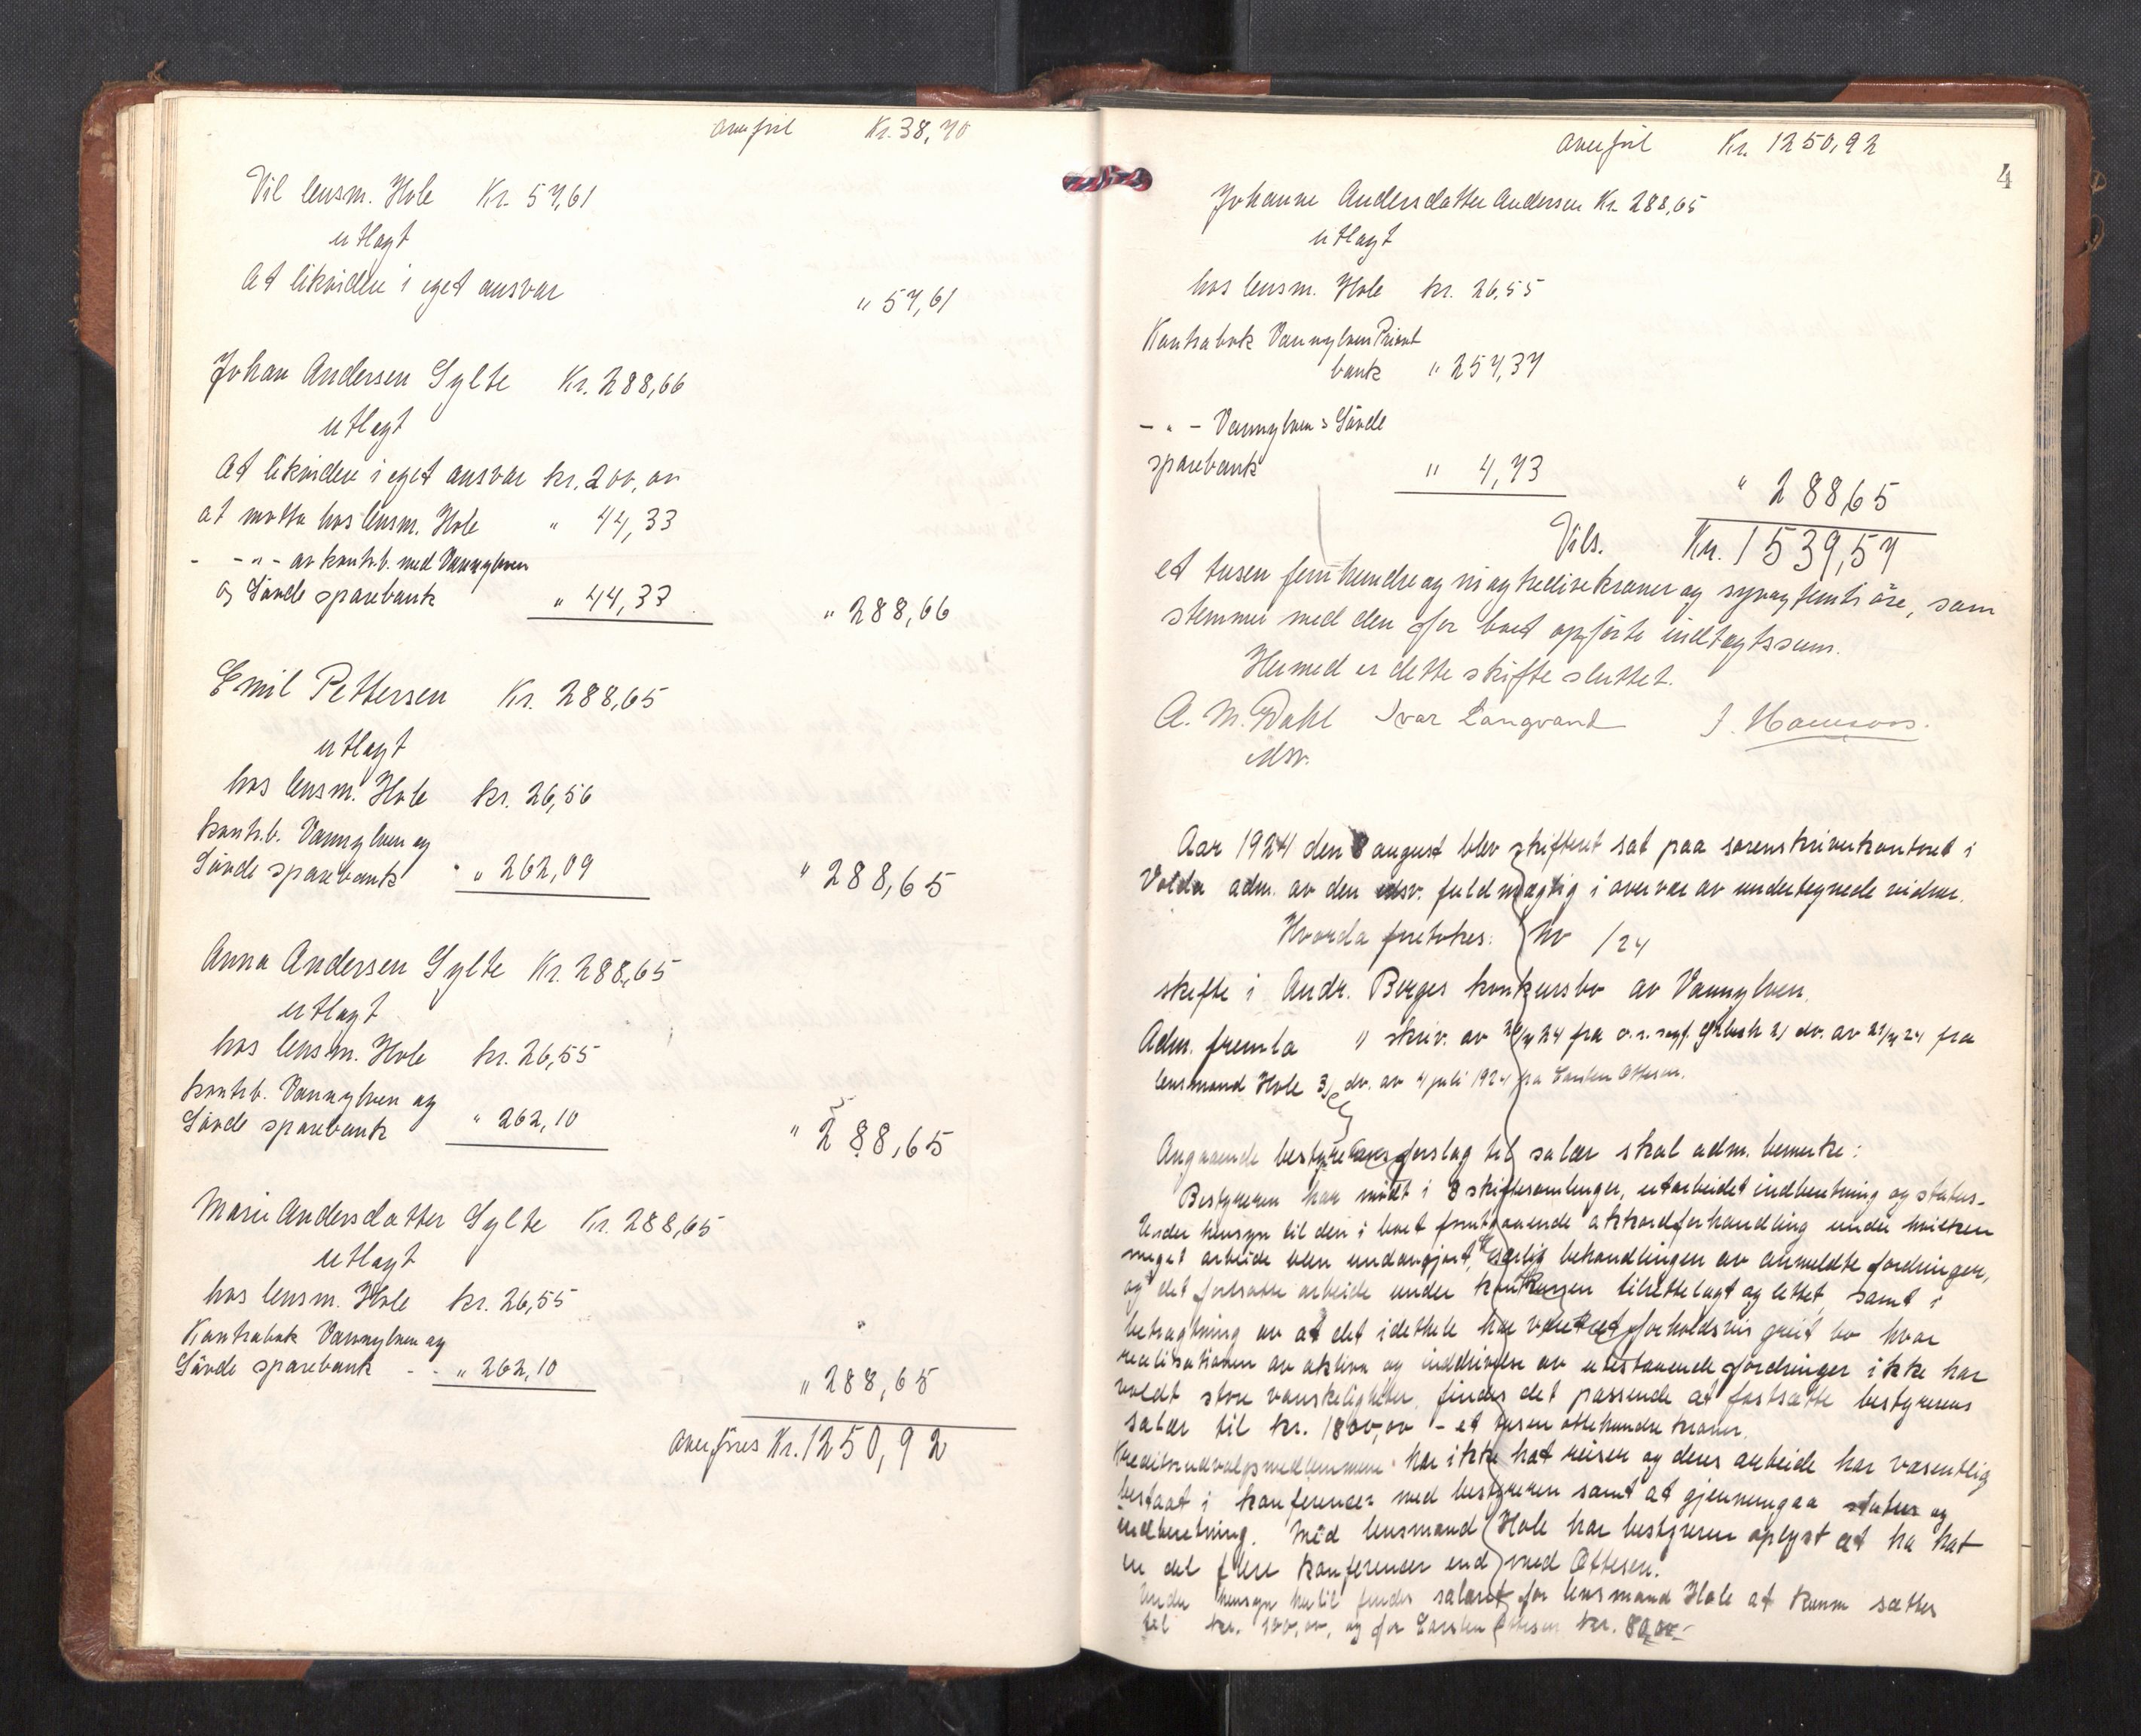 overført Kr. 38,70
Til lensm. Hole Kr. 57,61
utlagt
At likvidere i eget ansvar " 57,61
Johan Andersen Sylte Kr. 288,66
utlagt
At likvidere i eget ansvar kr. 200,00
at motta hos lensm. Hole " 44,33
- -"- av kontrb. med Vannylven
og Søvde sparebank " 44,33 " 288,66
Emil Pettersen Kr. 288,65
utlagt
hos lensm. Hole kr. 26,56
kontrb. Vannylven og
Søvde sparebank " 262,09 " 288,65
Anna Andersen Sylte Kr. 288,65
utlagt
hos lensm. Hole kr. 26,55
kontrb. Vannylven og
Søvde sparebank " 262,10 " 288,65
Marie Andersdatter Sylte Kr. 288,65
utlagt
hos lensm. Hole kr. 26,55
Kontrabok Vannylven og
Søvde sparebank - - " 262,10 " 288,65
overføres Kr. 1250,92
overført Kr. 1250,92
4
Johanne Andersdatter Andersen Kr. 288,65
utlagt
hos lensm. Hole kr. 26,55
Kontrabok Vannylven Privat
bank " 257,37
- " - Vannylven & Søvde
sparebank " 4,73 " 288,65
Tils. Kr. 1539,57
et tusen femhundreogniogtredive kroner og syvogfemti øre, som
stemmer med den for boet opførte indtægtssum.
Hermed er dette skifte sluttet.
A. M. Dahl Ivar Langvand J.
edsv.
Aar 1924 den 8 august blev skifteret sat paa sorenskriverkontoret i
Volda adm. av den edsv. fuldmægtig i overvær av undertegnede vidner.
Hvorda foretokes: No /24
skifte i Andr. Berges konkursbo av Vannylven.
Adm. fremla 1) skriv. av 24 fra o.r. sagf. 2) do. av 24 fra
lensmand Hole 3) do. av 4 juli 1924 fra Carsten Ottesen.
Angaaende bestyrerens forslag til salær skal adm. bemerke:
Bestyreren har møtt i 8 skiftesamlinger, utarbeidet indberetning og status.
Under hensyn til den i boet forutgaaende akkordforhandling under hvilken
meget arbeide blev undagjort, særlig behandlingen av anmeldte fordringer,
og det fortsatte arbeide under konkursen tilrettelagt og lettet, samt i
betragtning av at det idethele har været et forholdsvis greit bo hvor
realisationen av aktiva og inddrivelse av utestaaende fordringer ikke har
voldt store vanskeligheter, findes det passende at fastsætte bestyrerens
salær til kr. 1800,00 - et tusen ottehundre kroner.
Kreditorudvalgsmedlemmene har ikke hat reiser og deres arbeide har væsentlig
bestaat i konferencer med bestyreren samt at gjennemgaa status og
indberetning. Med lensmand Hole har bestyreren oplyst at ha hat
en del flere konferencer end med Ottesen.
Under hensyn hertil findes salæret for lensmand Hole at kunne sættes
til kr. 100,00, og for Carsten Ottesen kr. 80,00.